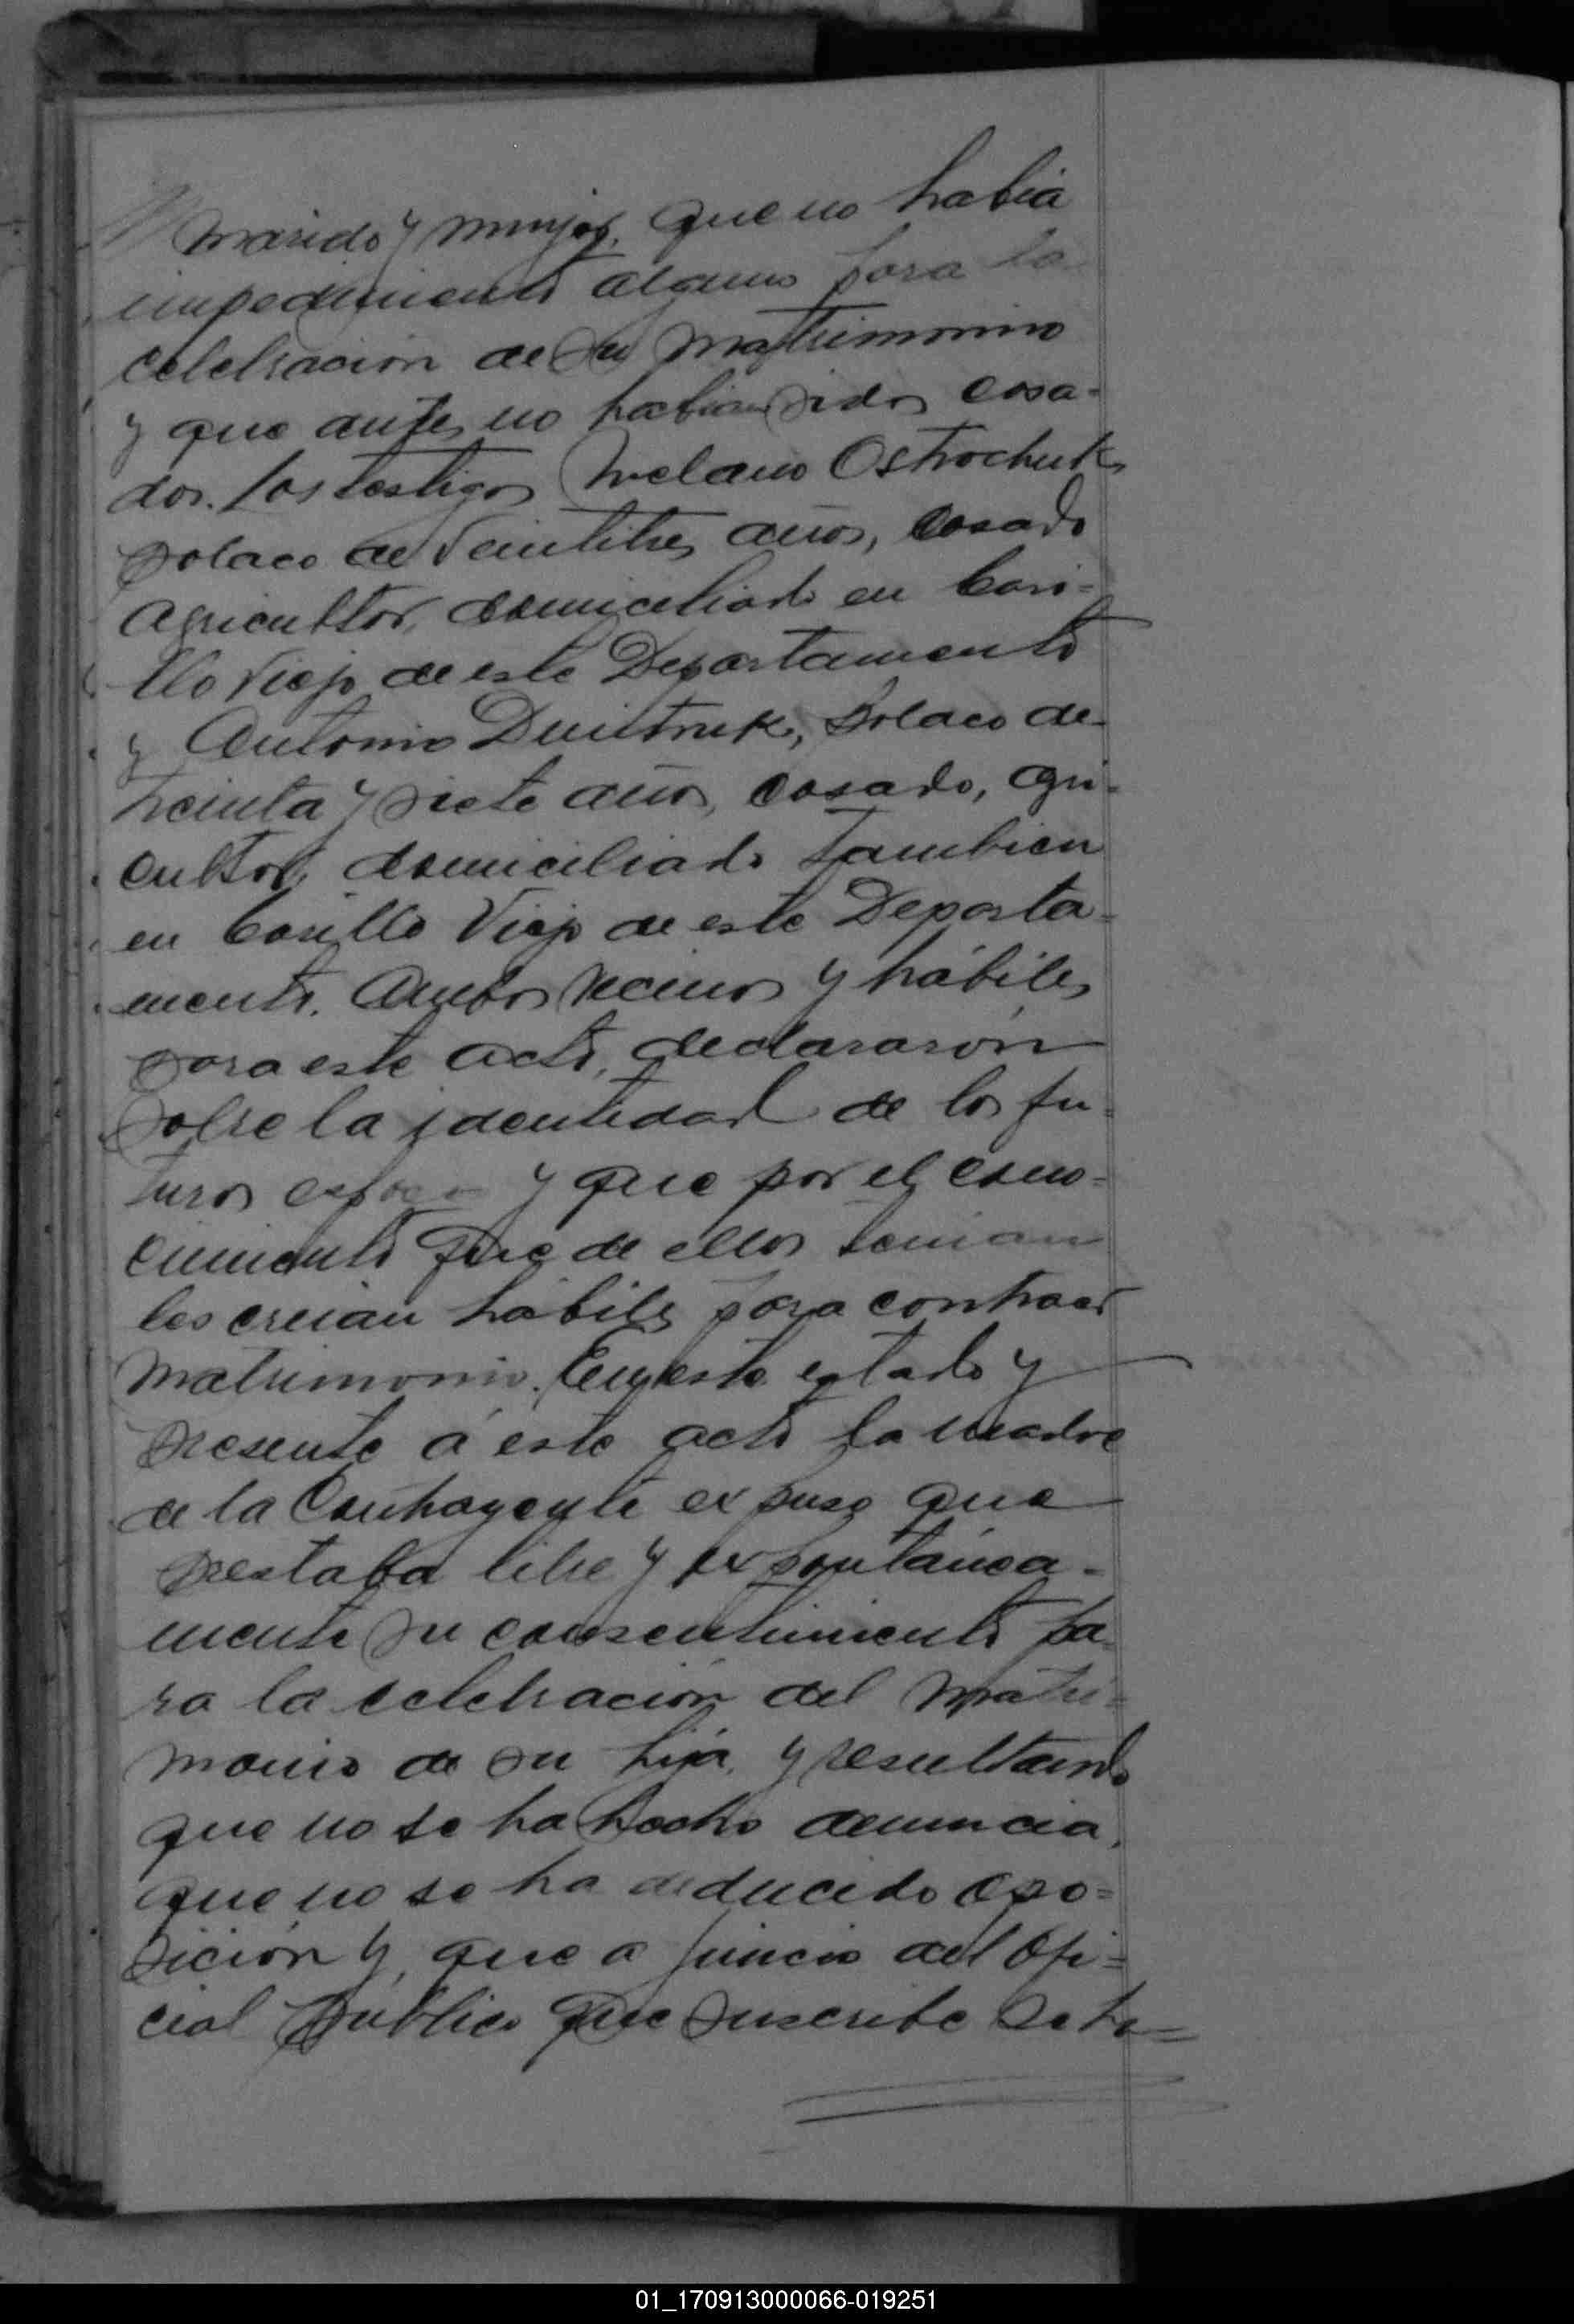 marido y mujer, que no habia
impedimento alguno para la
celebración de su matrimonio
y que antes no habian sidos casa-
dos. Los testigos Melano Ostrochuk,
polaco de veintitres años, casado
agricultor, domiciliado en Cari-
llo Viejo de este Departamento
y Antonio Dmitruk, polaco de
treinta y siete años, casado, agri-
cultor, domiciliado tambien
en Carillo Viejo de este Departa-
mento. Ambos vecinos y hábiles
para este acto, declararón
sobre la identidad de los fu-
turos esposos y que por el cono-
cimiento que de ellos tenian
les creian hábiles para contraer
matrimonio. En este estado y
presente á este acto la madre
de la Contrayente expuso que
prestaba libre y expontánea-
mente su consentimiento pa-
ra la celebración del matri-
monio de su hija, y resultando
que no se ha hecho denuncia,
que no se ha deducido opo-
sición y, que a juicio del Ofi-
cial Público que suscribe se ha=
01_170913000066-019251